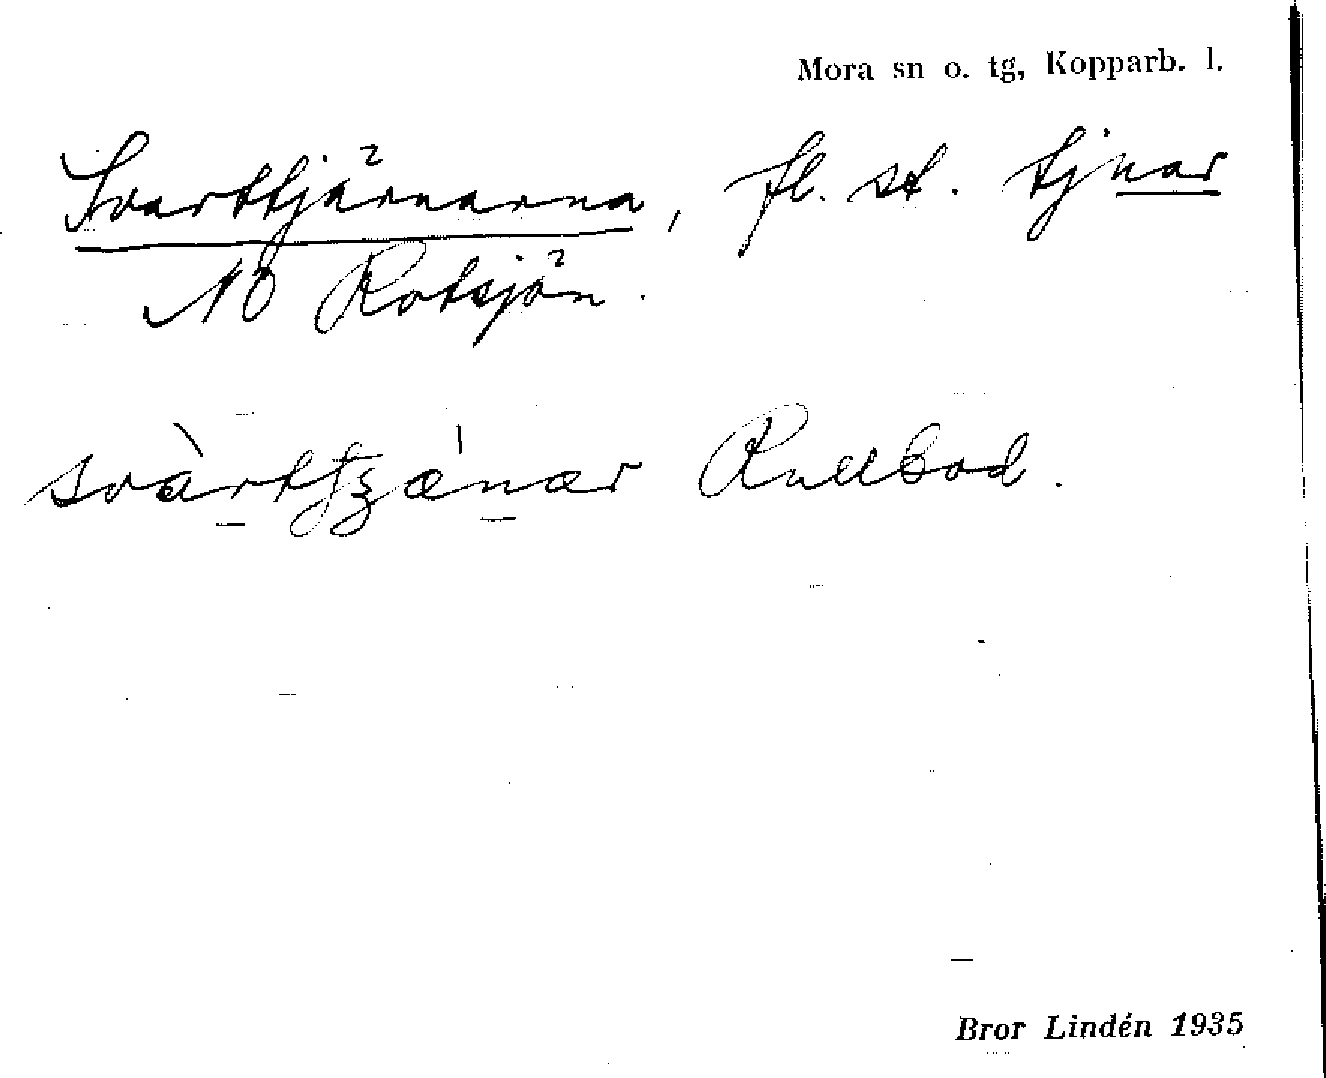 Mora sn o. tg, Kopparb. l.
Svarttjärnarna, fl. st. tjnar
NO Rotsjön.
svàrttjʒǽnær Rullbod.
Bror Lindén 1935